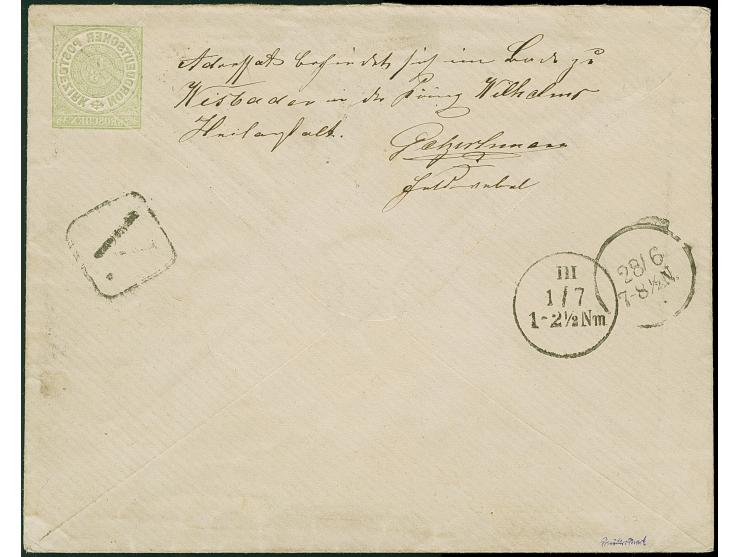 NORDDEUTSCHER POSTBEZIRK
GROSCHEN
Adressat befindet sich im Bade zu
Wisbaden in der Prinz Wilhelms
Heilanstalt.
Feldwebel
III
1/7
1-2½Nm
28/6
7-8½N.